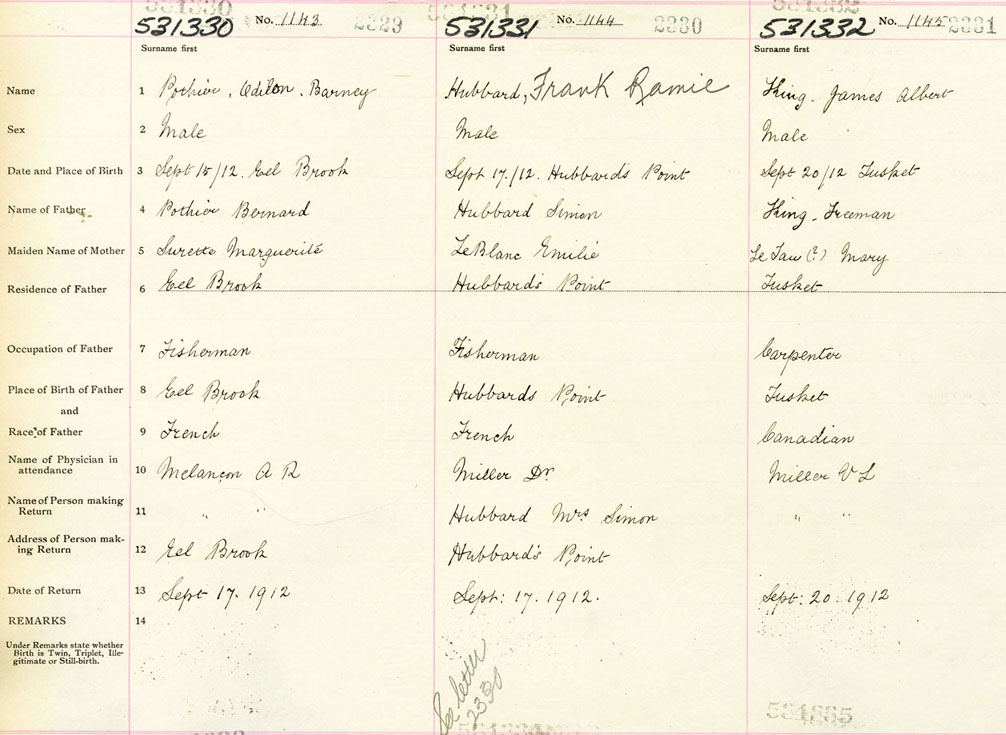 531330 531331 531332
531330 No. 1143 2329 531331 No. 1144 2330 531332 No. 1145 2331
Surname first Surname first Surname first
Name 1 Pothier, Odilon, Barney Hubbard, Frank Ramie King, James Albert
Sex 2 Male Male Male
Date and Place of Birth 3 Sept 15/12. Eel Brook Sept 17/12. Hubbard's Point Sept 20/12 Tusket
Name of Father 4 Pothier Bernard Hubbard Simon King, Freeman
Maiden Name of Mother 5 Surette Marguerite LeBlanc Emilie Le Fau (?) Mary
Residence of Father 6 Eel Brook Hubbard's Point Tusket
Occupation of Father 7 Fisherman Fisherman Carpenter
Place of Birth of Father 8 Eel Brook Hubbards Point Tusket
and
Race of Father 9 French French Canadian
Name of Physician in
attendance 10 Melançon A R Miller Dr. Miller V L
Name of Person making
Return 11 " " Hubbard Mrs Simon " "
Address of Person mak-
ing Return 12 Eel Brook Hubbard's Point
Date of Return 13 Sept 17. 1912 Sept: 17. 1912. Sept: 20. 1912
REMARKS 14
Under Remarks state whether
Birth is Twin, Triplet, Ille-
gitimate or Still-birth.
See letter
2330